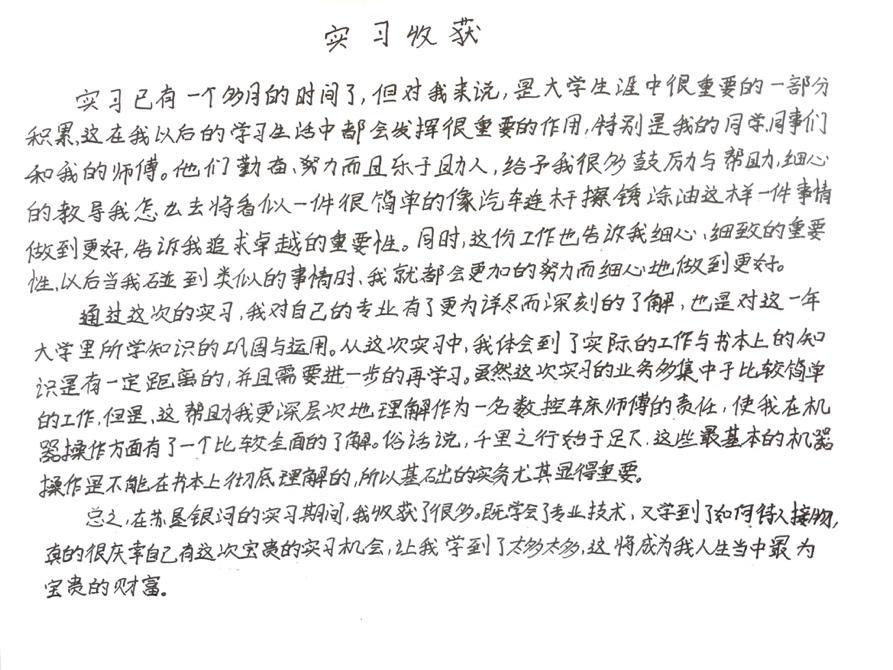 实习收获
实习已有一个多月的时间了,但对我来说,是大学生涯中很重要的一部分
积累,这在我以后的学习生活中都会发挥很重要的作用,特别是我的同学同事们
和我的师傅。他们勤奋、努力而且乐于助人,给予我很多鼓励与帮助,细心
的教导我怎么去将看似一件很简单的像汽车连杆擦锈涂油这样一件事情
做到更好,告诉我追求卓越的重要性。同时,这份工作也告诉我细心、细致的重要
性,以后当我碰到类似的事情时,我就都会更加的努力而细心地做到更好。
通过这次的实习,我对自己的专业有了更为详尽而深刻的了解,也是对这一年
大学里所学知识的巩固与运用。从这次实习中,我体会到了实际的工作与书本上的知
识是有一定距离的,并且需要进一步的再学习。虽然这次实习的业务多集中于比较简单
的工作,但是,这帮助我更深层次地理解作为一名数控车床师傅的责任,使我在机
器操作方面有了一个比较全面的了解。俗话说,千里之行始于足下,这些最基本的机器
操作是不能在书本上彻底理解的,所以基础的实务尤其显得重要。
总之,在苏垦银河的实习期间,我收获了很多。既学会了专业技术,又学到了如何待人接物,
真的很庆幸自己有这次宝贵的实习机会,让我学到了太多太多,这将成为我人生当中最为
宝贵的财富。